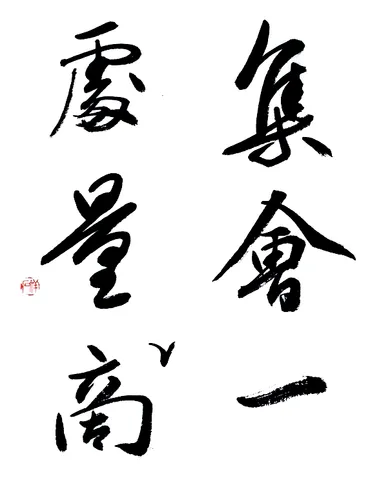 集會一
處量商